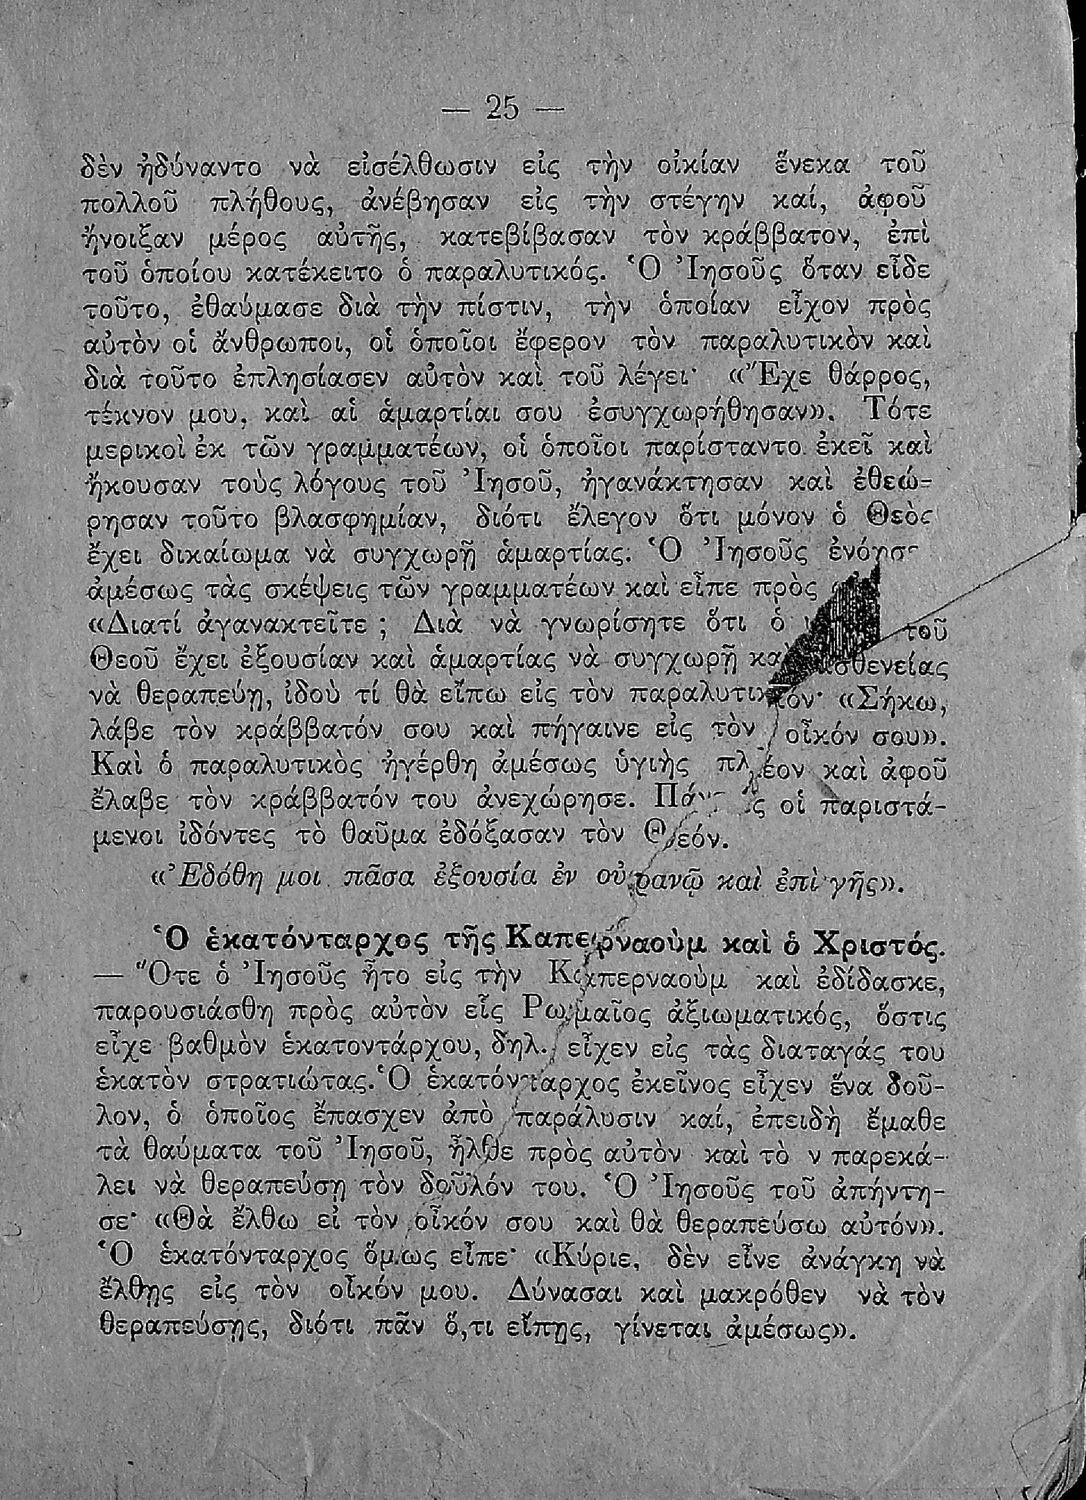 — 25 —
δὲν ἠδύναντο νὰ εἰσέλθωσιν εἰς τὴν οἰκίαν ἕνεκα τοῦ
πολλοῦ πλήθους, ἀνέβησαν εἰς τὴν στέγην καί, ἀφοῦ
ἤνοιξαν μέρος αὐτῆς, κατεβίβασαν τὸν κράββατον, ἐπὶ
τοῦ ὁποίου κατέκειτο ὁ παραλυτικός. Ὁ Ἰησοῦς ὅταν εἶδε
τοῦτο, ἐθαύμασε διὰ τὴν πίστιν, τὴν ὁποίαν εἶχον πρὸς
αὐτὸν οἱ ἄνθρωποι, οἱ ὁποῖοι ἔφερον τὸν παραλυτικὸν καὶ
διὰ τοῦτο ἐπλησίασεν αὐτὸν καὶ τοῦ λέγει· «Ἔχε θάρρος,
τέκνον μου, καὶ αἱ ἁμαρτίαι σου ἐσυγχωρήθησαν». Τότε
μερικοὶ ἐκ τῶν γραμματέων, οἱ ὁποῖοι παρίσταντο ἐκεῖ καὶ
ἤκουσαν τοὺς λόγους τοῦ Ἰησοῦ, ἠγανάκτησαν καὶ ἐθεώ-
ρησαν τοῦτο βλασφημίαν, διότι ἔλεγον ὅτι μόνον ὁ Θεὸς
ἔχει δικαίωμα νὰ συγχωρῇ ἁμαρτίας. Ὁ Ἰησοῦς ἐνόησε
ἀμέσως τὰς σκέψεις τῶν γραμματέων καὶ εἶπε πρὸς
«Διατί ἀγανακτεῖτε ; Διὰ νὰ γνωρίσητε ὅτι ὁ τοῦ
Θεοῦ ἔχει ἐξουσίαν καὶ ἁμαρτίας νὰ συγχωρῇ καὶ ἀσθενείας
νὰ θεραπεύῃ, ἰδοὺ τί θὰ εἴπω εἰς τὸν παραλυτικόν· «Σήκω,
λάβε τὸν κράββατόν σου καὶ πήγαινε εἰς τὸν οἶκόν σου».
Καὶ ὁ παραλυτικὸς ἠγέρθη ἀμέσως ὑγιὴς πλέον καὶ ἀφοῦ
ἔλαβε τὸν κράββατόν του ἀνεχώρησε. Πάντες οἱ παριστά-
μενοι ἰδόντες τὸ θαῦμα ἐδόξασαν τὸν Θεόν.
«Ἐδόθη μοι πᾶσα ἐξουσία ἐν οὐρανῷ καὶ ἐπὶ γῆς».
Ὁ ἑκατόνταρχος τῆς Καπερναοὺμ καὶ ὁ Χριστός.
— Ὅτε ὁ Ἰησοῦς ἦτο εἰς τὴν Καπερναοὺμ καὶ ἐδίδασκε,
παρουσιάσθη πρὸς αὐτὸν εἷς Ρωμαῖος ἀξιωματικός, ὅστις
εἶχε βαθμὸν ἑκατοντάρχου, δηλ. εἶχεν εἰς τὰς διαταγάς του
ἑκατὸν στρατιώτας. Ὁ ἑκατόνταρχος ἐκεῖνος εἶχεν ἕνα δοῦ-
λον, ὁ ὁποῖος ἔπασχεν ἀπὸ παράλυσιν καί, ἐπειδὴ ἔμαθε
τὰ θαύματα τοῦ Ἰησοῦ, ἦλθε πρὸς αὐτὸν καὶ τὸ ν παρεκά-
λει νὰ θεραπεύσῃ τὸν δοῦλόν του. Ὁ Ἰησοῦς τοῦ ἀπήντη-
σε· «Θὰ ἔλθω εἰ τὸν οἶκόν σου καὶ θὰ θεραπεύσω αὐτόν».
Ὁ ἑκατόνταρχος ὅμως εἶπε· «Κύριε, δὲν εἶνε ἀνάγκη νὰ
ἔλθῃς εἰς τὸν οἶκόν μου. Δύνασαι καὶ μακρόθεν νὰ τὸν
θεραπεύσῃς, διότι πᾶν ὅ,τι εἴπῃς, γίνεται ἀμέσως».